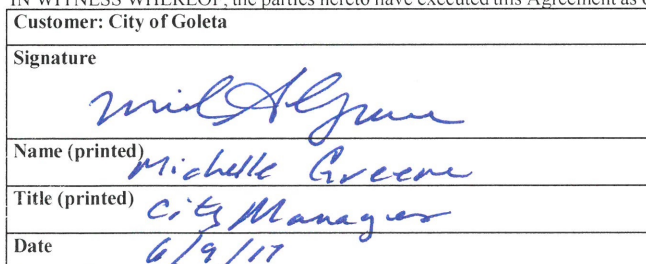 IN WITNESS WHEREOF, the parties hereto have executed this Agreement as
Customer: City of Goleta
Signature
Name (printed) Michelle Greene
Title (printed) City Manager
Date 6/9/17